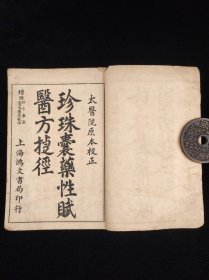 太醫院原本校正
珍珠囊藥性賦
醫方捷徑
上海鴻文書局印行